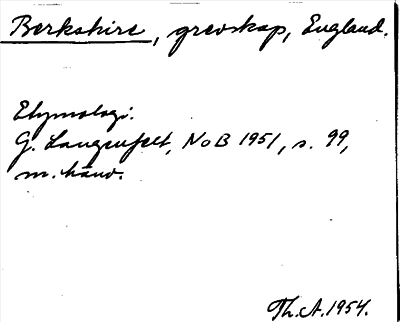 Berkshire, grevskap, England.
Etymologi.
G. Langenfelt, NoB 1951, s. 99,
m. hänv.
Th. A. 1954.